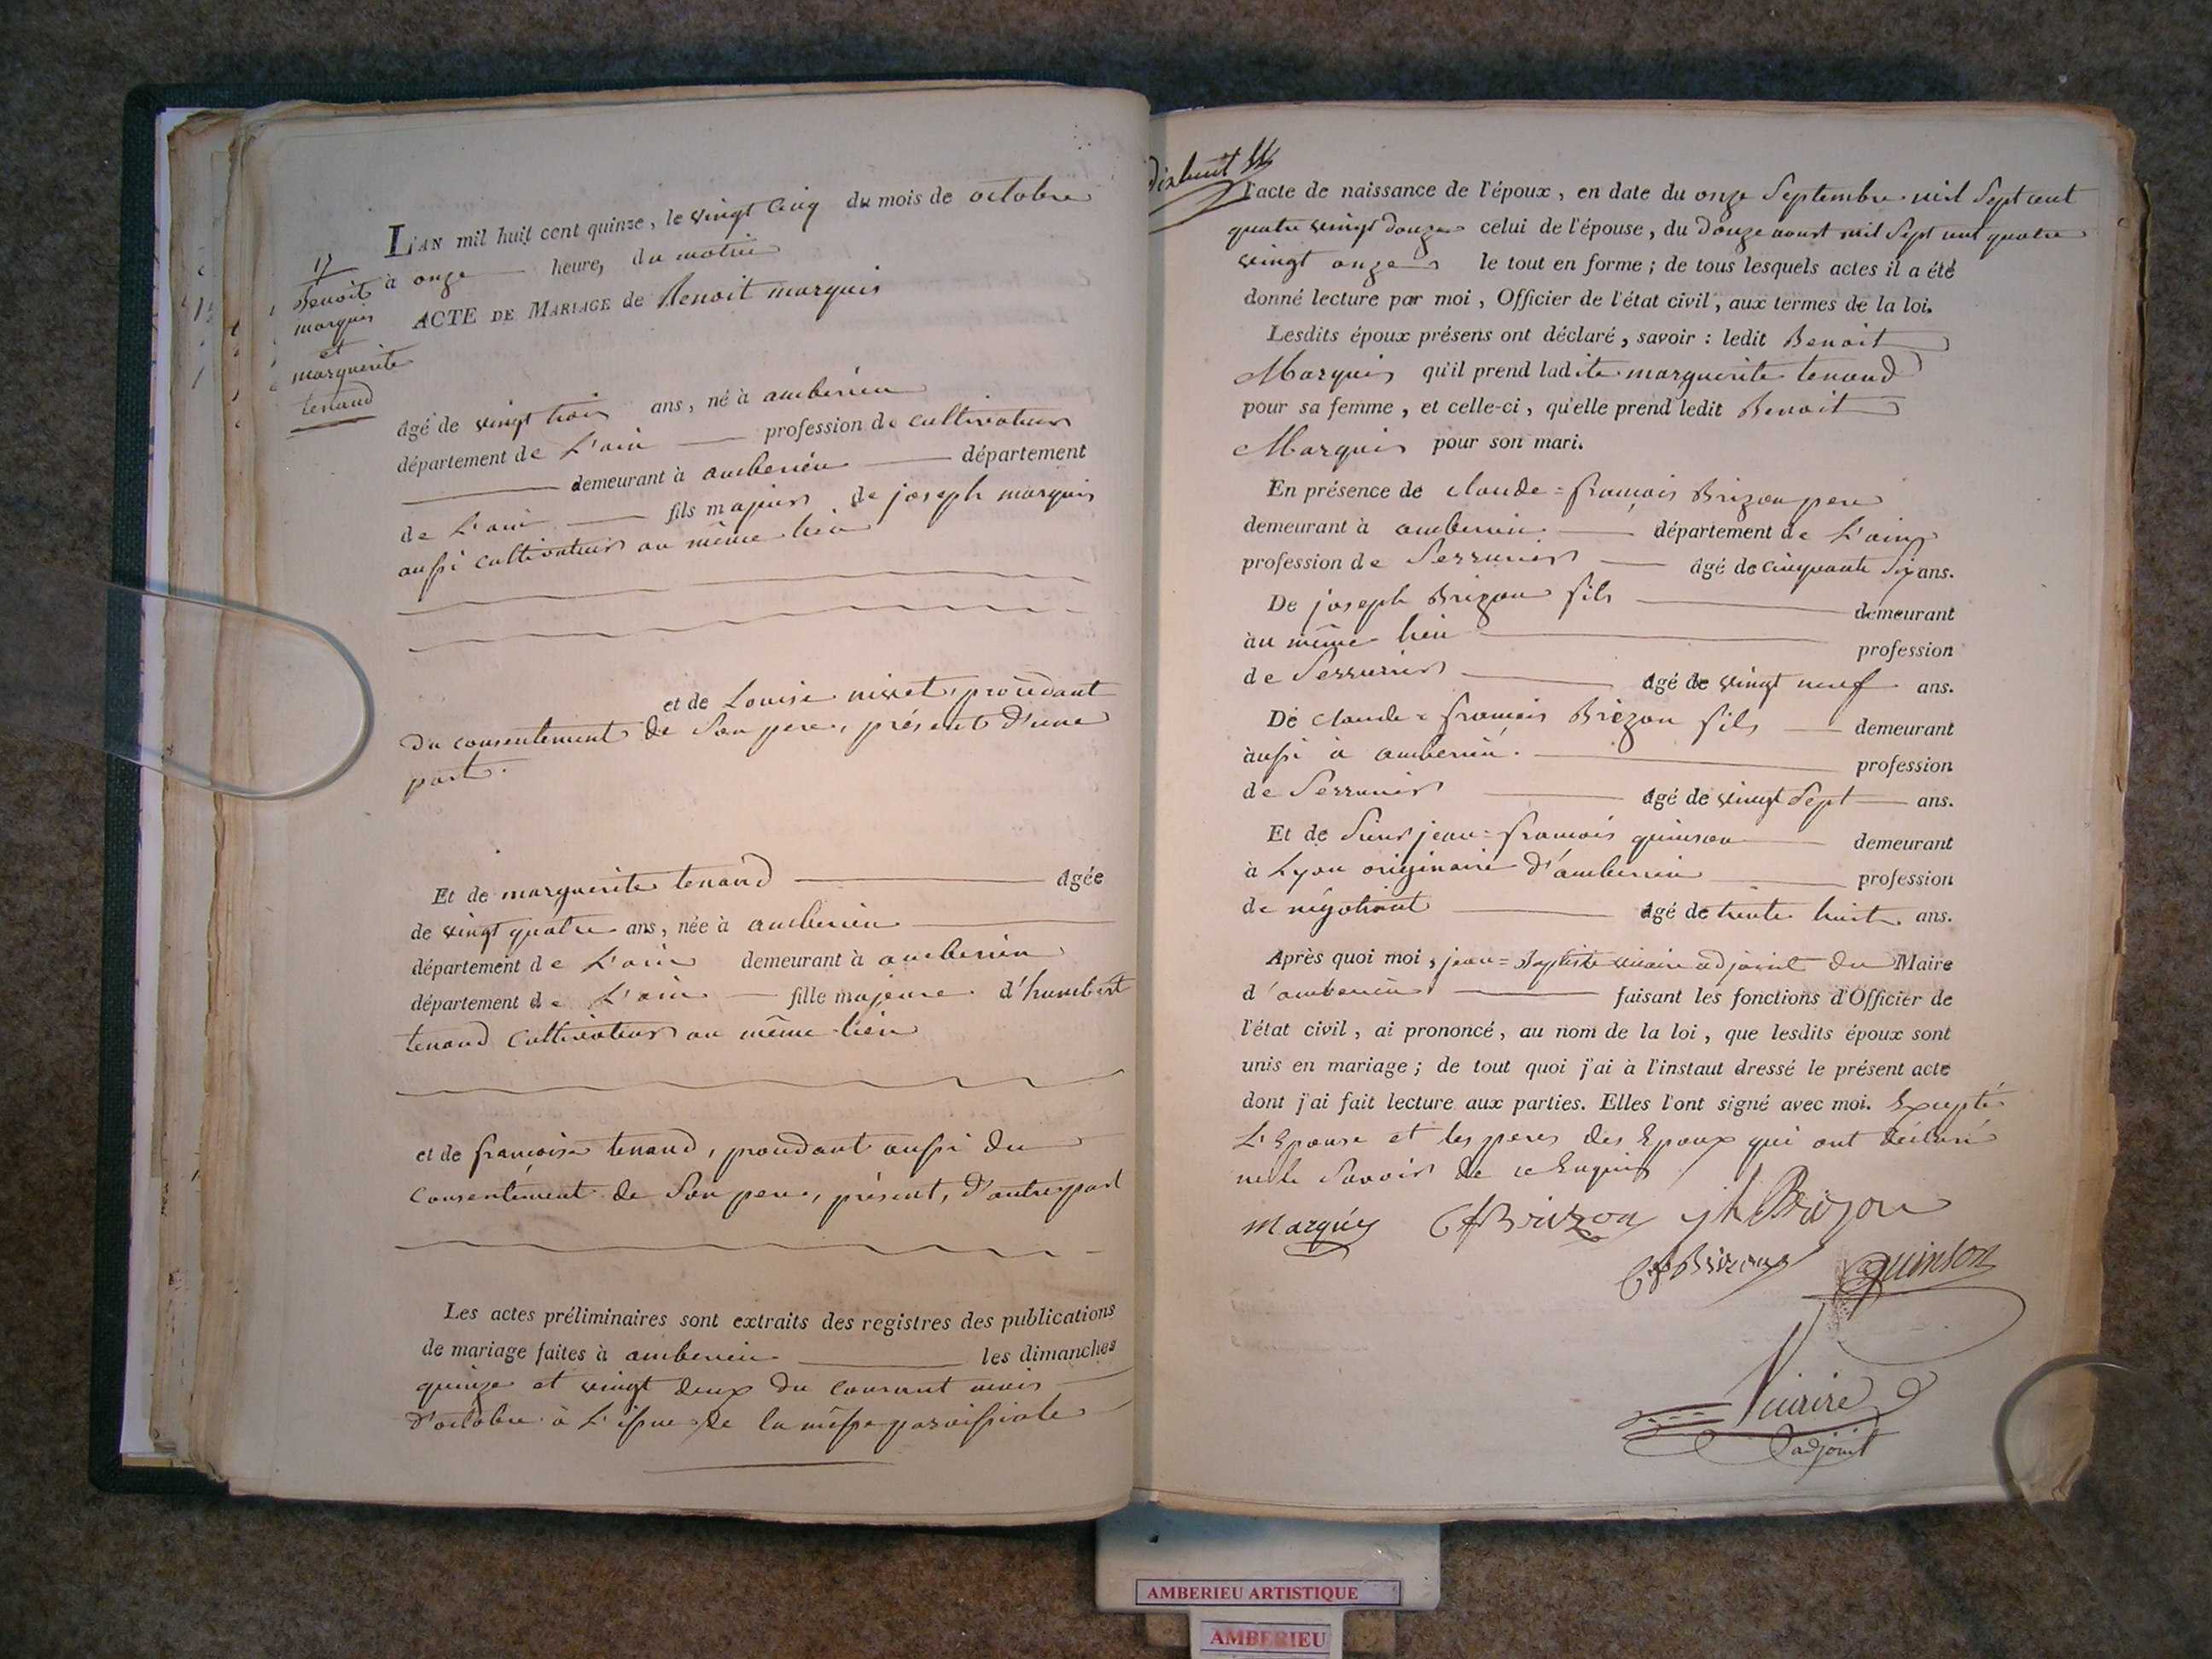 17
Benoit
marquis
et
marguerite
tenand
L'AN mil huit cent quinze, le vingt Cinq du mois de octobre
à onze heure, du matin
ACTE DE MARIAGE de Benoit marquis
âgé de vingt trois ans, né à amberieu
département de L'ain profession de cultivateur
demeurant à amberieu département
de L'ain fils majeur de joseph marquis
aussi cultivateur au même lieu
et de Louise nivet, procédant
du consentement de Son pere, présent d'une
part.
Et de marguerite tenand agée
de vingt quatre ans, née à amberieu
département de L'ain demeurant à amberieu
département de L'ain fille majeure d'humbert
tenand Cultivateur au même lieu
et de françoise tenand, procédant aussi du
Consentement de Son pere, présent, d'autre part
Les actes préliminaires sont extraits des registres des publications
de mariage faites à amberieu les dimanches
quinze et vingt deux du courant mois
d'octobre à L'issue de la messe paroissiale
dixhuit
l'acte de naissance de l'époux, en date du onze Septembre mil Sept cent
quatre vingt douze celui de l'épouse, du douze aoust mil Sept cent quatre
vingt onze le tout en forme; de tous lesquels actes il a été
donné lecture par moi, Officier de l'état civil, aux termes de la loi.
Lesdits époux présens ont déclaré, savoir: ledit Benoit
Marquis qu'il prend ladite marguerite tenand
pour sa femme, et celle-ci, qu'elle prend ledit Benoit
Marquis pour son mari.
En présence de claude=françois Brizon pere
demeurant à amberieu département de L'ain
profession de Serrurier âgé de cinquante Six ans.
De joseph Brizon fils demeurant
au même lieu profession
de Serrurier âgé de vingt neuf ans.
De claude=françois Brizon fils demeurant
aussi à amberieu. profession
de Serrurier âgé de vingt Sept ans.
Et de Sieur jean=françois quinson demeurant
à Lyon originaire d'amberieu profession
de négotiant âgé de trente huit ans.
Après quoi moi, jean=Baptiste vicaire adjoint du Maire
d'amberieu faisant les fonctions d'Officier de
l'état civil, ai prononcé, au nom de la loi, que lesdits époux sont
unis en mariage; de tout quoi j'ai à l'instaut dressé le présent acte
dont j'ai fait lecture aux parties. Elles l'ont signé avec moi. Excepté
L'Epouse et les peres des Epoux qui ont déclaré
ne le Savoir de ce Enquis
marquis Cf Brizon jh Brizon
Cf Brizon Quinson
Vicaire
adjoint
AMBERIEU ARTISTIQUE
AMBERIEU